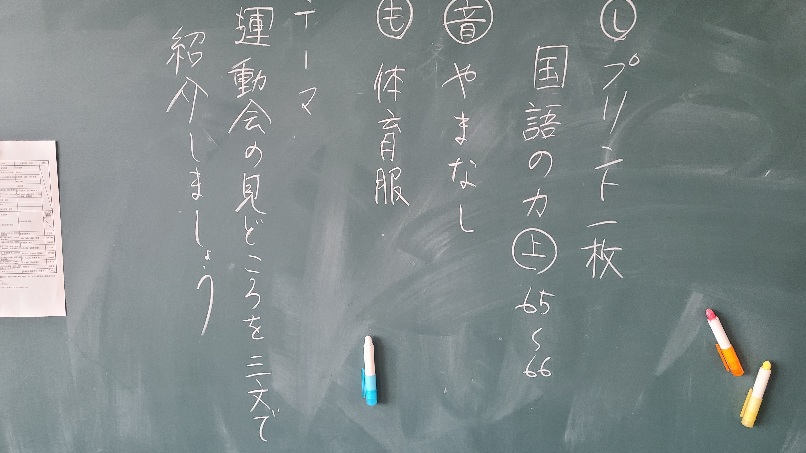 ㋛ プリント一枚
国語の力㊤ 65〜66
㊟音 やまなし
㋲ 体育服
テーマ
運動会の見どころを三文で
紹介しましょう